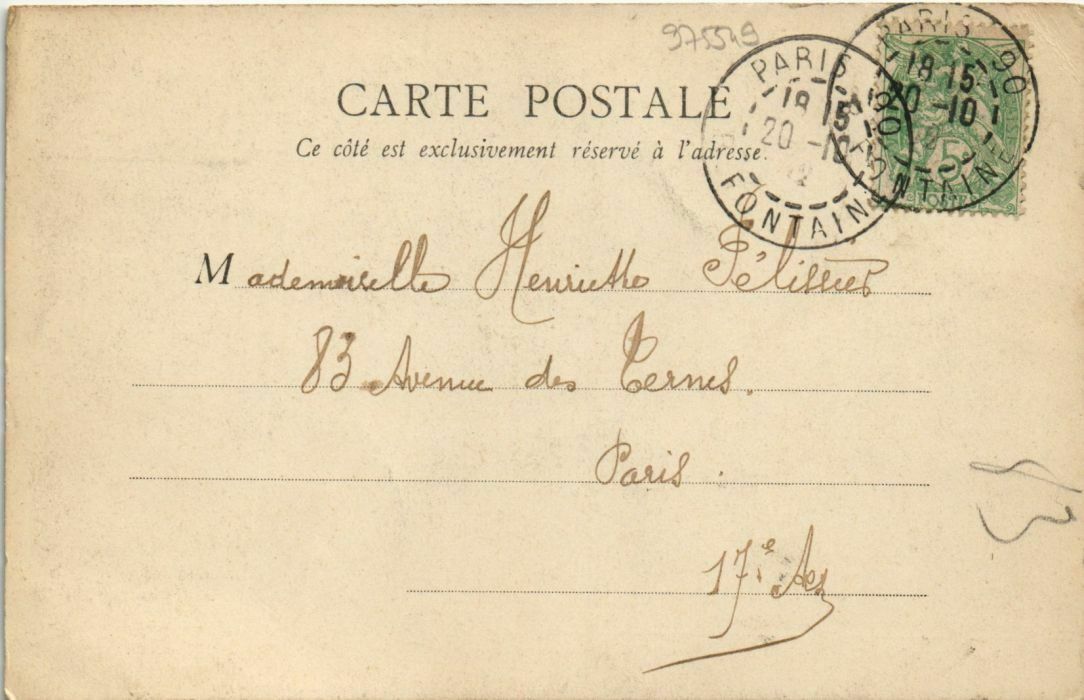 975549
CARTE POSTALE
Ce côté est exclusivement réservé à l'adresse.
PARIS 90
18 15
20 -10
FONTAINE
PARIS 90
18 15
20 -10
FONTAINE
5
POSTES
Mademoiselle Henriette Pélissier
83 Avenue des Ternes.
Paris.
17e Ar